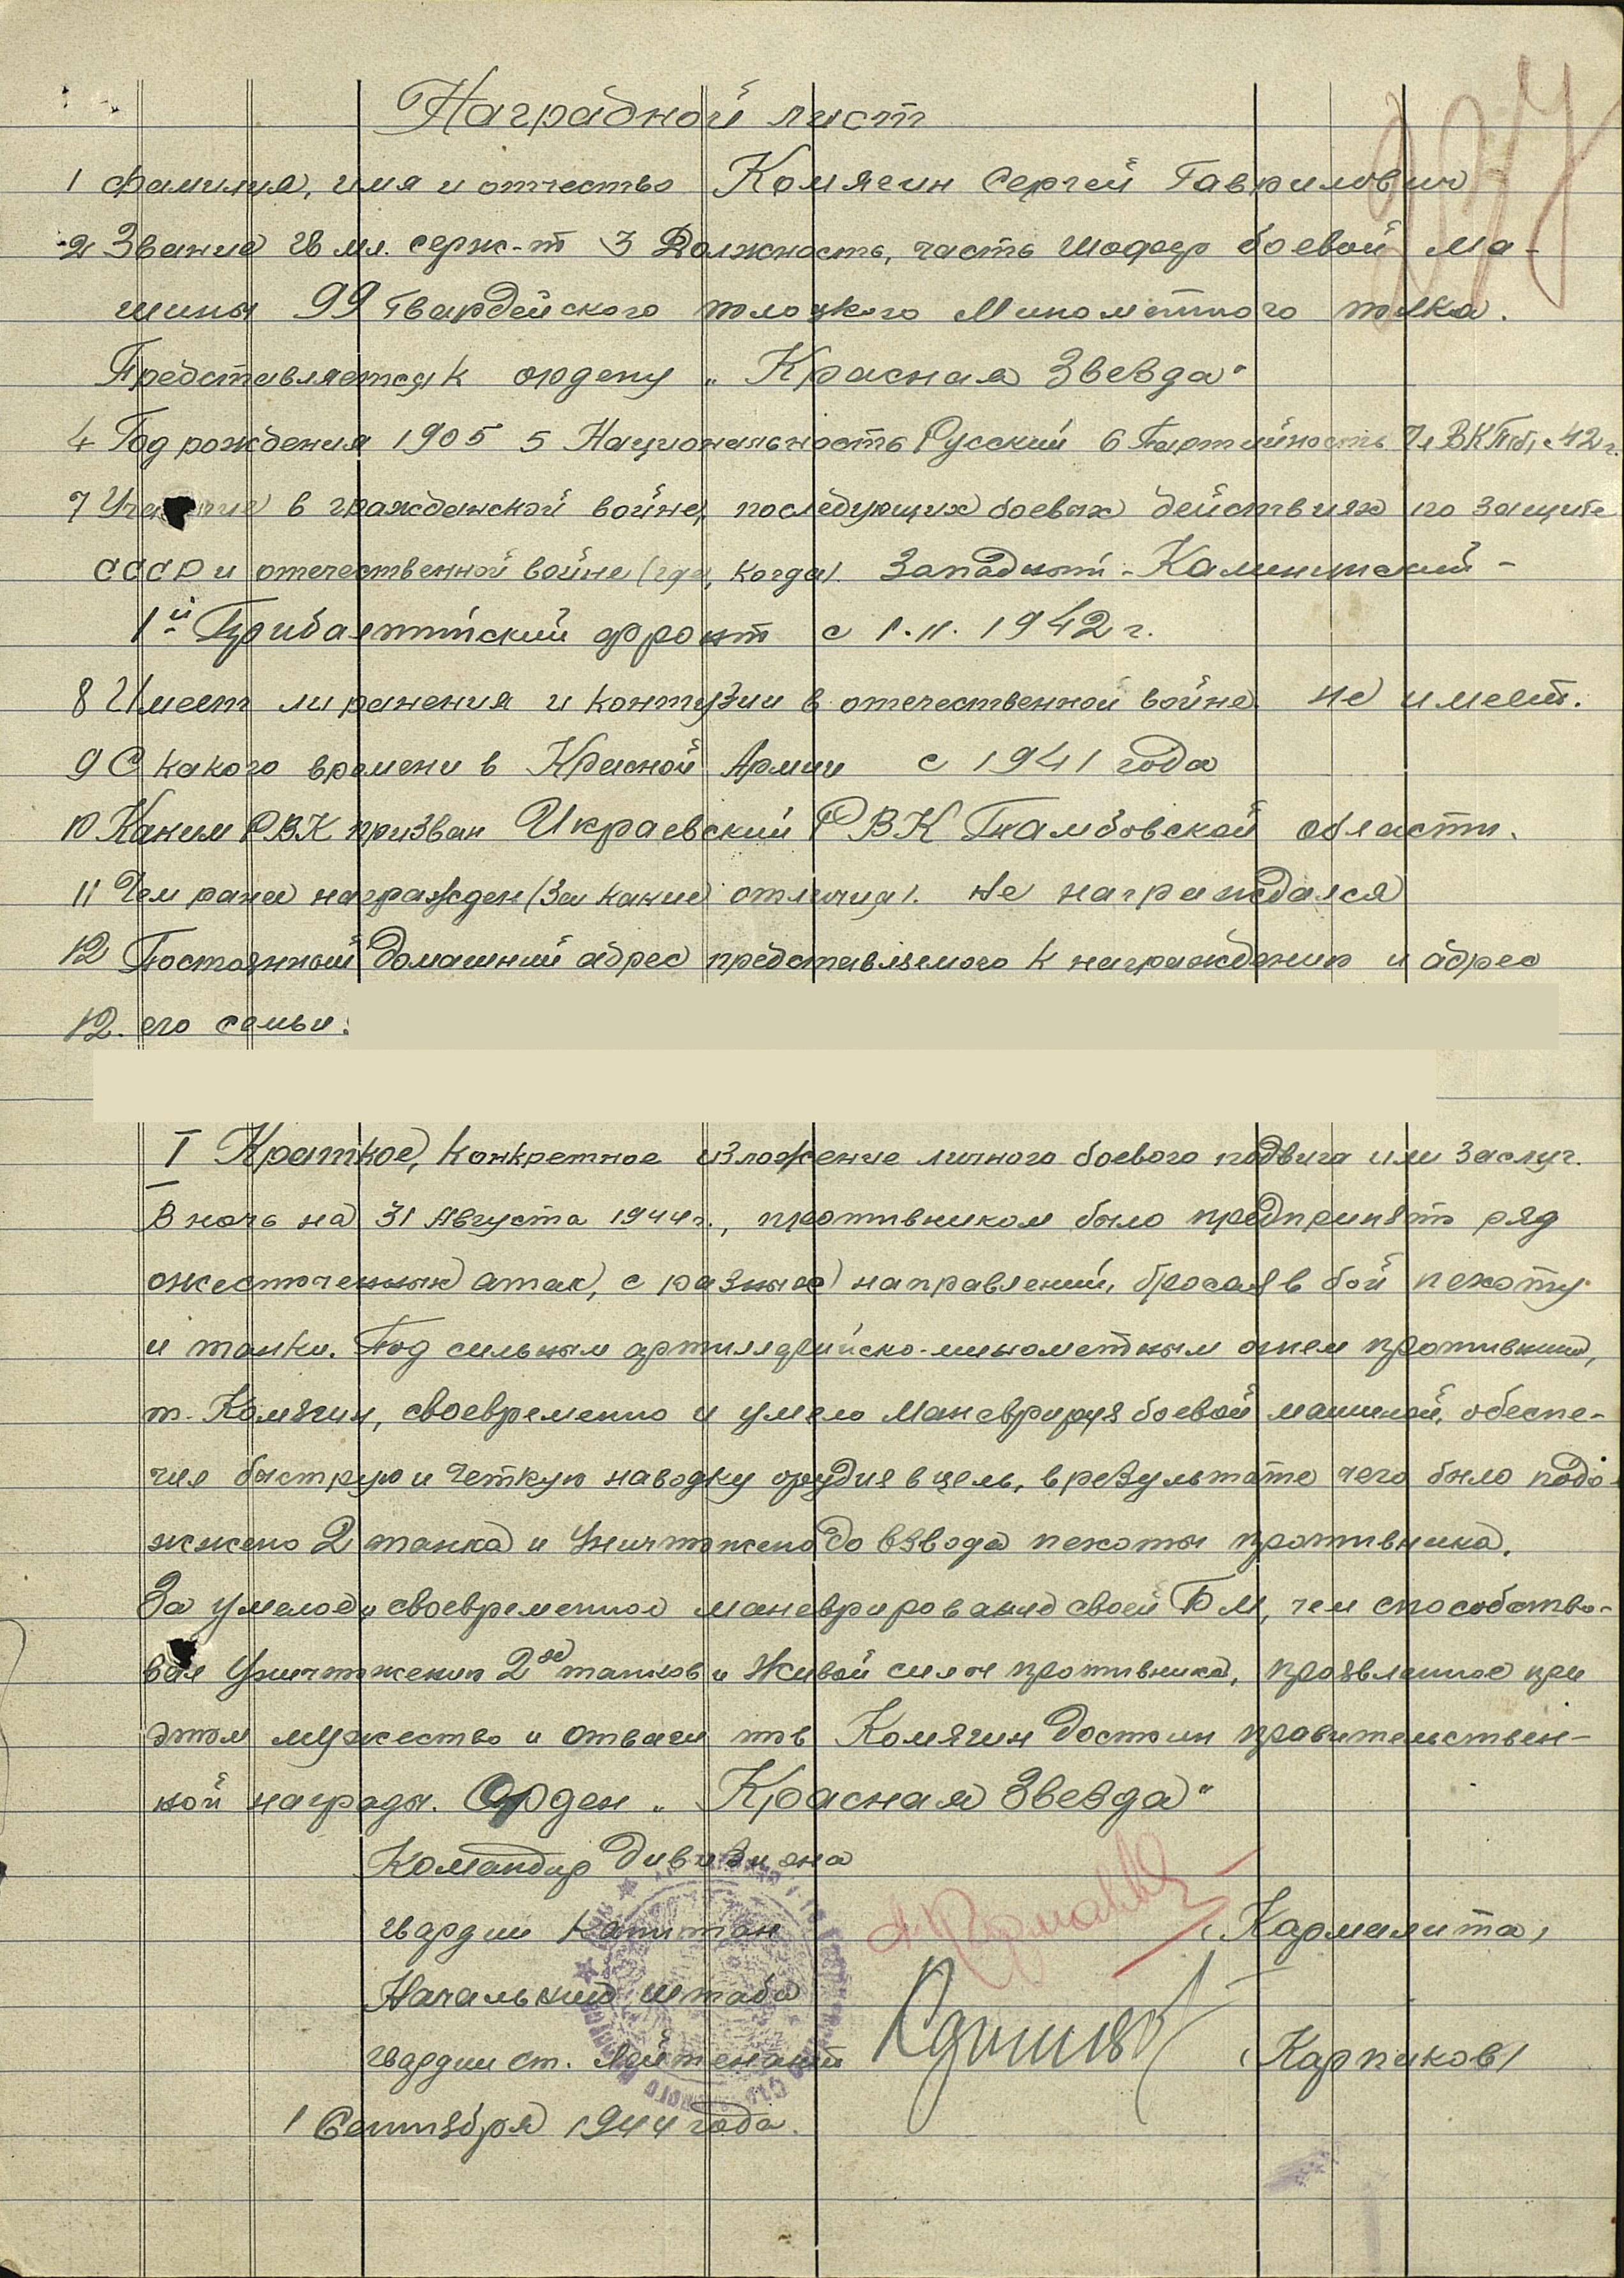 Наградной лист
1 Фамилия, имя и отчество Комягин Сергей Гаврилович
2 Звание гв мл. серж-т 3 Должность, часть шофер боевой ма-
шины 99 Гвардейского Минометного полка.
Представляется к ордену „Красная Звезда"
4 Год рождения 1905 5 Национальность Русский 6 Партийность Чл ВКП(б) с 42 г.
7 Участие в гражданской войне, последующих боевых действиях по защите
СССР и отечественной войне (где, когда). Западный - Калининский -
1й Прибалтийский фронт с 1.11.1942 г.
8 Имеет ли ранения и контузии в отечественной войне. не имеет.
9 С какого времени в Красной Армии с 1941 года
10 Каким РВК призван РВК Тамбовской области.
11 Чем ранее награжден (За какие отличия). Не награждался
12 Постоянный домашний адрес представляемого к награждению и адрес
12. его семьи:
I Краткое, конкретное изложение личного боевого подвига или заслуг.
В ночь на 31 Августа 1944 г., противником было предпринято ряд
ожесточенных атак, с разных направлений, бросая в бой пехоту
и танки. Под сильным артиллерийско-минометным огнем противника,
т. Комягин, своевременно и умело маневрируя боевой машиной, обеспе-
чил быструю и четкую наводку орудия в цель, в результате чего было подо-
жжено 2 танка и уничтожено до взвода пехоты противника.
За умелое и своевременное маневрирование своей БМ, чем способство-
вал уничтожению 2х танков и живой силы противника, проявленное при
этом мужество и отваги тов Комягин достоин правительствен-
ной награды. Орден „Красная Звезда"
Командир дивизиона
гвардии капитан (Кармалита)
Начальник штаба
гвардии ст. лейтенант (Карпиков)
1 Сентября 1944 года.